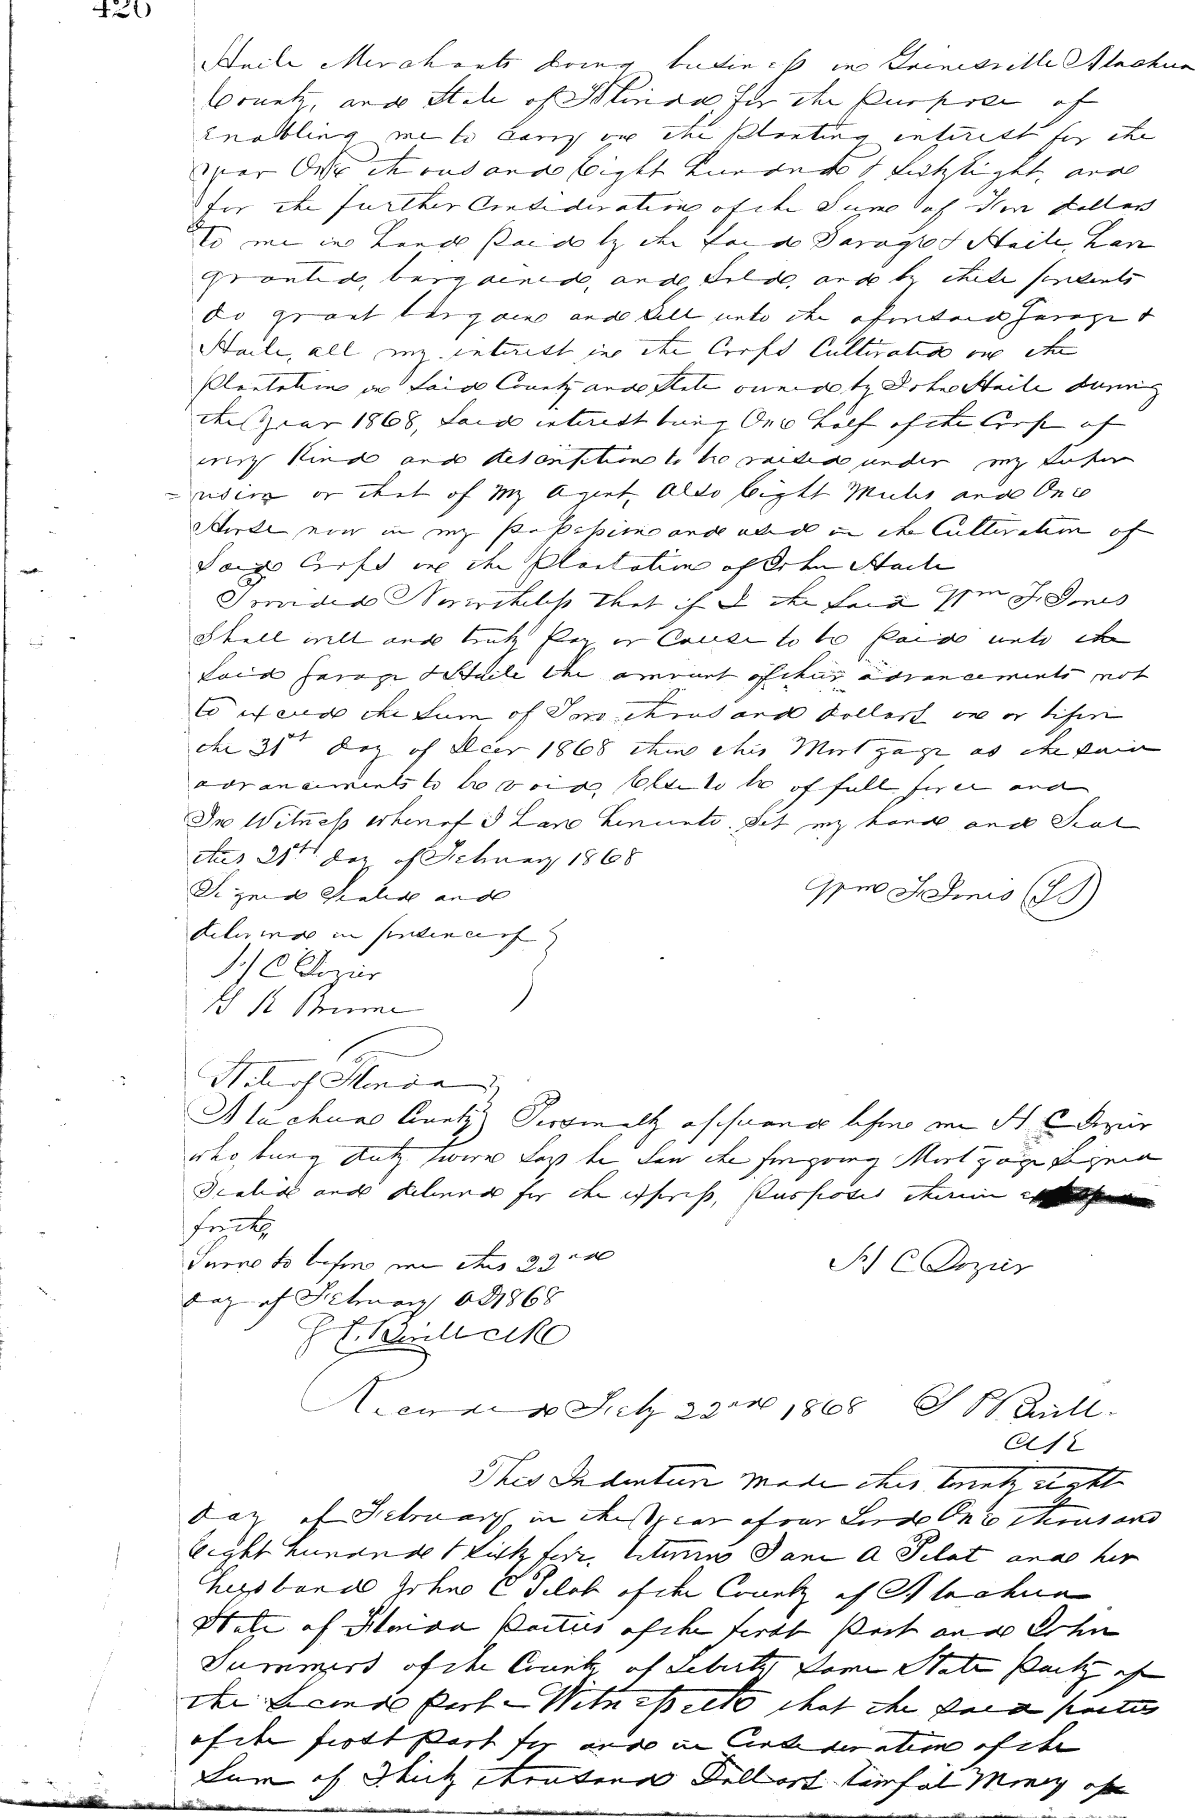 426
Haile Merchants doing business in Gainesville Alachua
County, and State of Florida, for the Purpose of
enabling me to carry on the Planting interest for the
year One thousand Eight hundred & Sixty Eight, and
for the further Consideration of the Sum of Five dollars
to me in hand Paid by the Said Savage & Haile, have
granted, bargained, and Sold, and by these presents
do grant bargain and Sell unto the aforesaid Savage &
Haile, all my interest in the Crops Cultivated on the
Plantation in Said County and State owned by John Haile during
the year 1868, Said interest being One half of the Crop of
every Kind and description to be raised under my Super
= vision or that of My Agent, Also Eight Mules and One
Horse now in my possession and used in the Cultivation of
Said Crops on the Plantation of John Haile
Provided Nevertheless That if I the Said Wm J. Jones
Shall well and truly Pay or Cause to be Paid unto the
Said Savage & Haile the amount of their advancements not
to exceed the Sum of Two thousand dollars on or before
the 31st day of Decr 1868 then this Mortgage as the said
advancements to be void, Else to be of full force and
In Witness whereof I have hereunto Set my hand and Seal
this 21st day of February 1868
Signed Sealed and Wm J Jones (LS)
delivered in presence of
H C Dozier
State of Florida
Alachua County Personally appeared before me H C Dozier
who being duly sworn Says he Saw the foregoing Mortgage Signed
Sealed and delivered for the express, Purposes therein
forth,
Sworn to before me this 22nd H C Dozier
day of February AD 1868
Clk
Recorded July 22nd 1868
Clk
This Indenture Made this twenty eight
day of February, in the year of our Lord One thousand
Eight hundred & Sixty five, between Jane A Pelot and her
husband John C Pelot of the County of Alachua
State of Florida Parties of the first Part and John
Summers of the County of Liberty Same State Party of
the Second Part - Witnesseth that the Said parties
of the first Part for and in Consideration of the
Sum of Thirty thousand Dollars lawful Money of